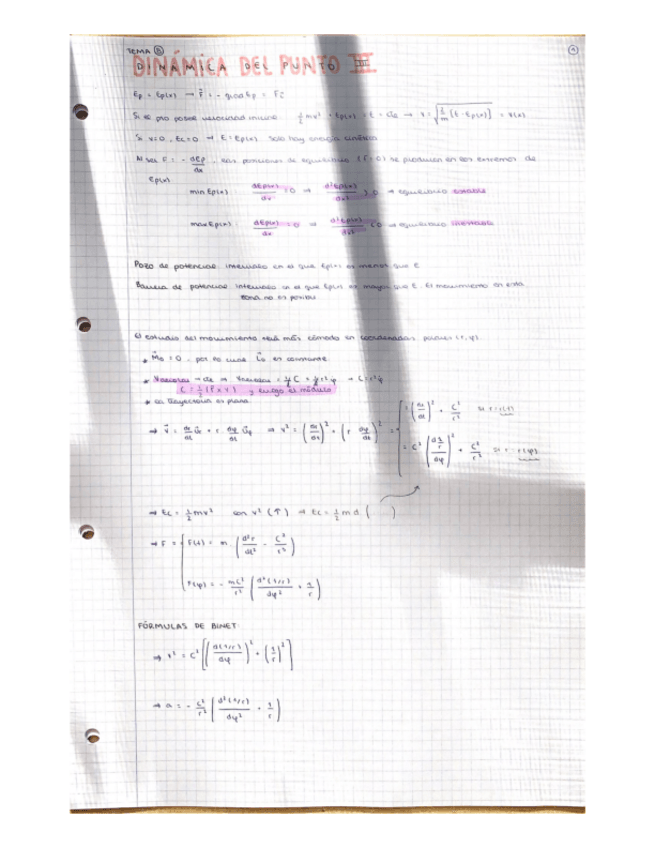 TEMA 8
DINÁMICA DEL PUNTO III
Ep = Ep(x) → F⃗ = - grad Ep = Fc
Si se pro posee velocidad inicial: ½ mv² + Ep(x) = E = cte → v = √(2/m [E - Ep(x)]) = v(x)
Si v=0, Ec=0 → E = Ep(x). Solo hay energía cinética
Al ser F = - dEp/dx, las posiciones de equilibrio (F=0) se producen en los extremos de
Ep(x)
min Ep(x) dEp(x)/dx = 0 ⇒ d²Ep(x)/dx² > 0 → equilibrio estable
max Ep(x) dEp(x)/dx = 0 ⇒ d²Ep(x)/dx² < 0 → equilibrio inestable
Pozo de potencial: intervalo en el que Ep(x) es menor que E
Barrera de potencial: intervalo en el que Ep(x) es mayor que E. El movimiento en esta
zona no es posible
El estudio del movimiento será más cómodo en coordenadas polares (r, φ)
* M⃗o = 0, por lo cual L⃗o es constante
* la trayectoria es plana
⇒ v⃗ = dr/dt u⃗r + r dφ/dt u⃗φ ⇒ v² = (dr/dt)² + (r dφ/dt)² =
= (dr/dt)² + C²/r² si r = r(t)
= C² (d 1/r / dφ)² + C²/r² si r = r(φ)
⇒ Ec = ½ mv² con v² (↑) → Ec = ½ m·d ( )
⇒ F = F(t) = m (d²r/dt² - C²/r³)
F(φ) = - mC²/r² (d²(1/r)/dφ² + 1/r)
FÓRMULAS DE BINET:
⇒ v² = C² [(d(1/r)/dφ)² + (1/r)²]
⇒ a = - C²/r² (d²(1/r)/dφ² + 1/r)